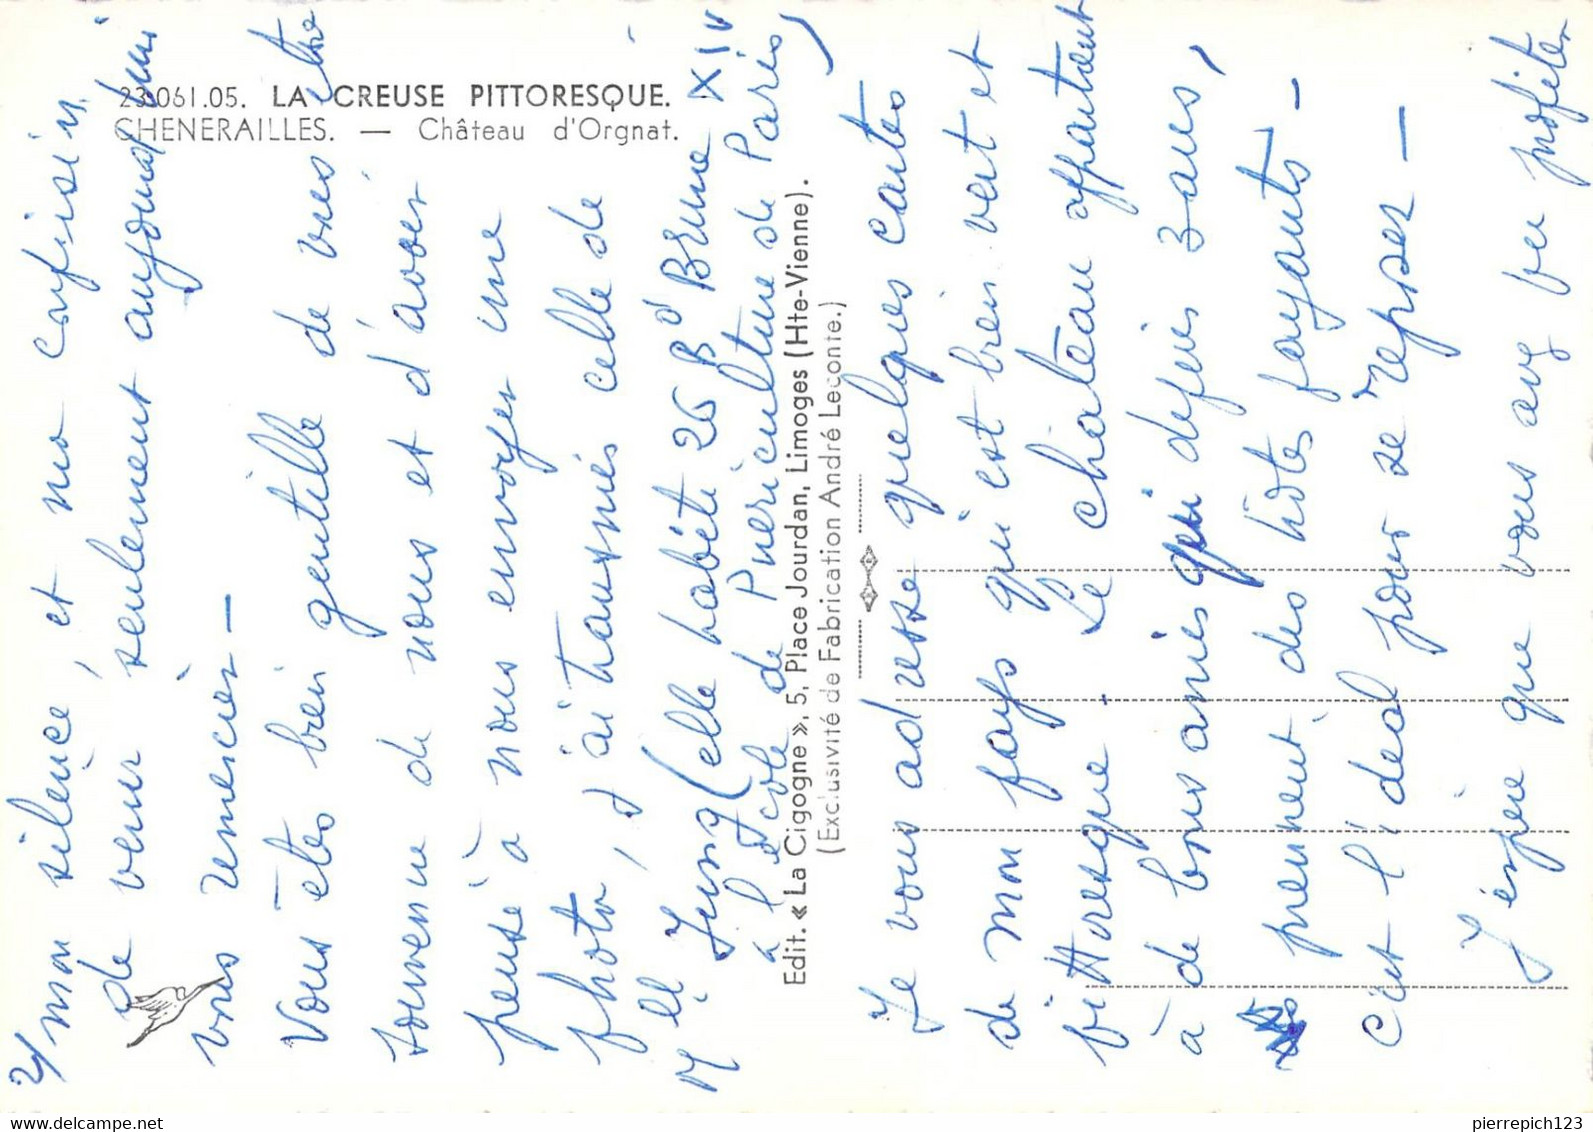 23.061.05. LA CREUSE PITTORESQUE.
CHENERAILLES. — Château d'Orgnat.
Edit. « La Cigogne », 5, Place Jourdan, Limoges (Hte-Vienne).
(Exclusivité de Fabrication André Leconte.)
2/ mon silence, et ma confusion
de venir seulement aujourd'hui
vous remercier —
Vous êtes bien gentille de vous être
souvenue de nous et d'avoir
pensé à nous envoyer une
photo, j'ai transmis celle de
Mlle Jung (elle habite 26 Bd Brune XIV
à l'école de Puericulture de Paris)
Je vous adresse quelques cartes
de mon pays qui est bien vert et
pittoresque. Le château appartient
à de bons amis qui depuis 3 ans,
prennent des hôtes payants —
C'est l'idéal pour se reposer —
J'espère que vous avez pu profiter
pierrepich123